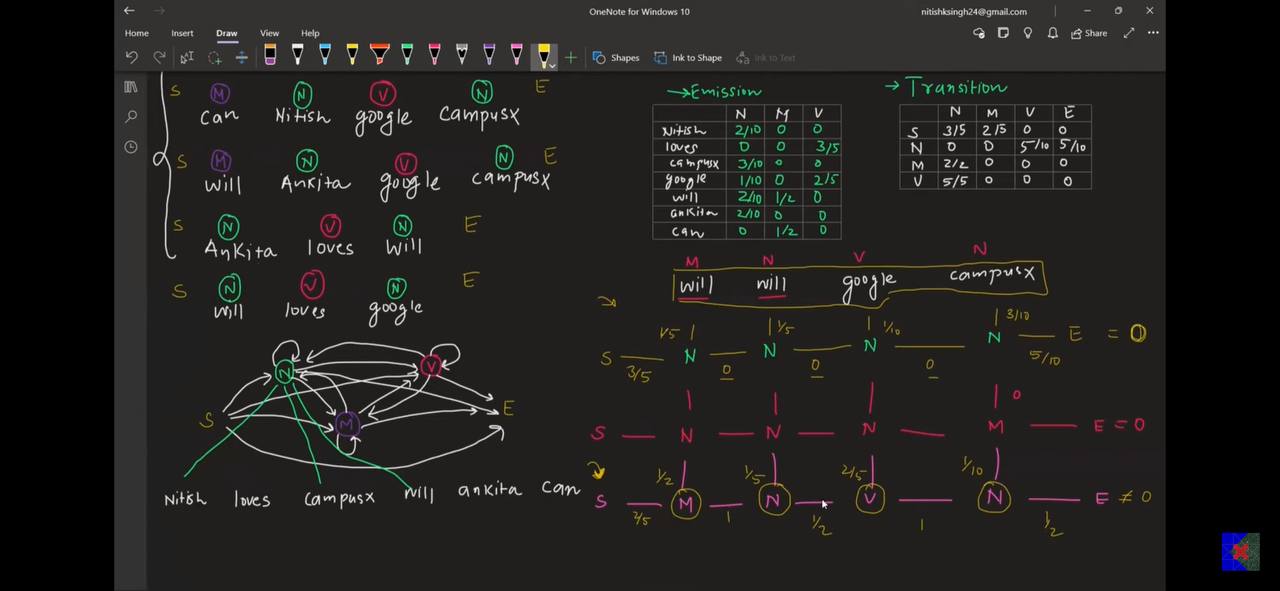 OneNote for Windows 10
nitishksingh24@gmail.com
Home Insert Draw View Help
Share
Shapes Ink to Shape Ink to Text
S M N V N E
Can Nitish google Campusx
S M N V N E
will Ankita google campusx
S N V N E
Ankita loves will
S N V N E
will loves google
N V
S M E
Nitish loves campusx will ankita can
→Emission
N M V
Nitish 2/10 0 0
loves 0 0 3/5
campusx 3/10 0 0
google 1/10 0 2/5
will 2/10 1/2 0
ankita 2/10 0 0
can 0 1/2 0
→ Transition
N M V E
S 3/5 2/5 0 0
N 0 0 5/10 5/10
M 2/2 0 0 0
V 5/5 0 0 0
M N V N
will will google campusx
1/5 1/5 1/10 3/10
S N N N N E = 0
3/5 0 0 0 5/10
0
S N N N M E = 0
1/2 1/5 2/5 1/10
S M N V N E ≠ 0
2/5 1 1/2 1 1/2